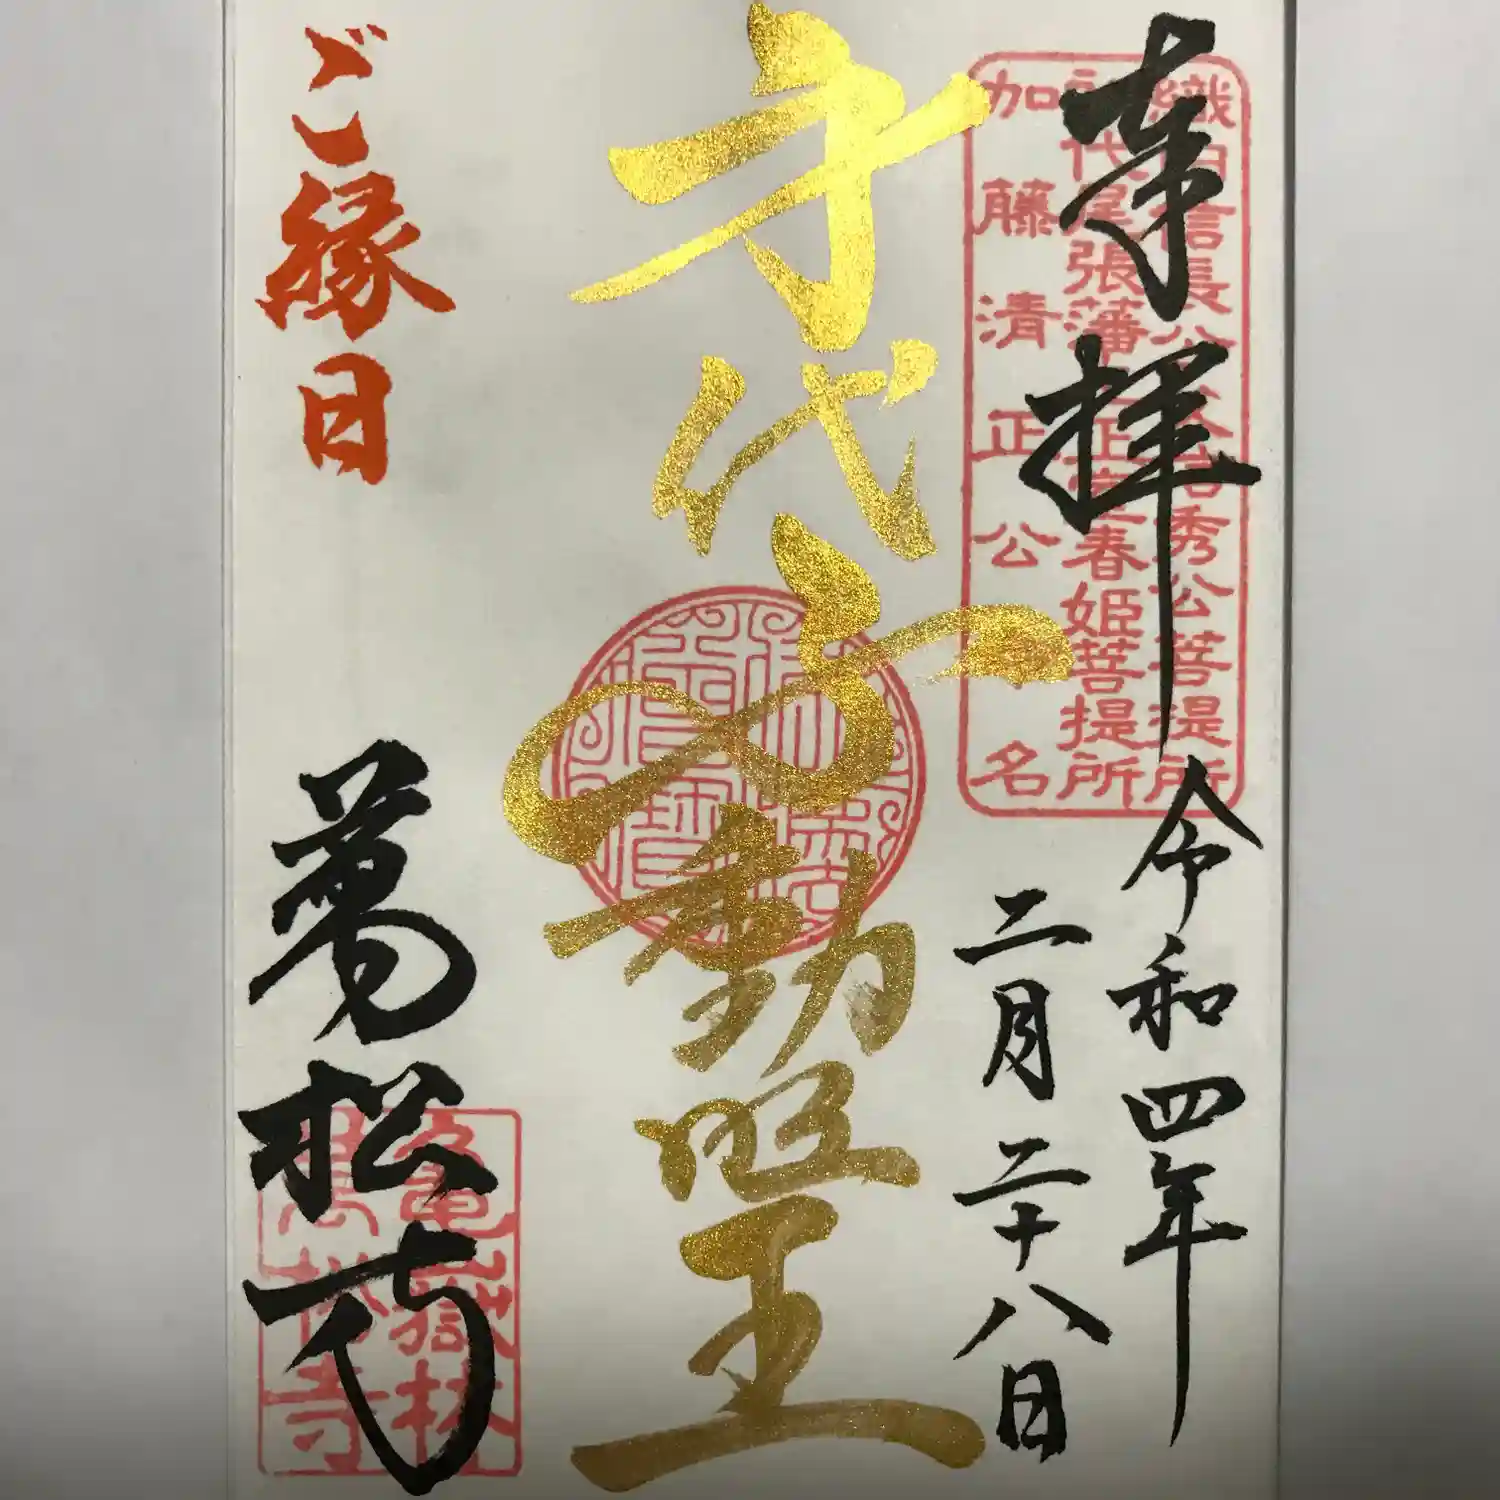 奉拝
令和四年
二月二十八日
織田信長公 信秀公菩提所
初代尾張藩主正室春姫菩提所
加藤清正公命名
身代不動明王
ご縁日
萬松寺
亀嶽林
萬松寺